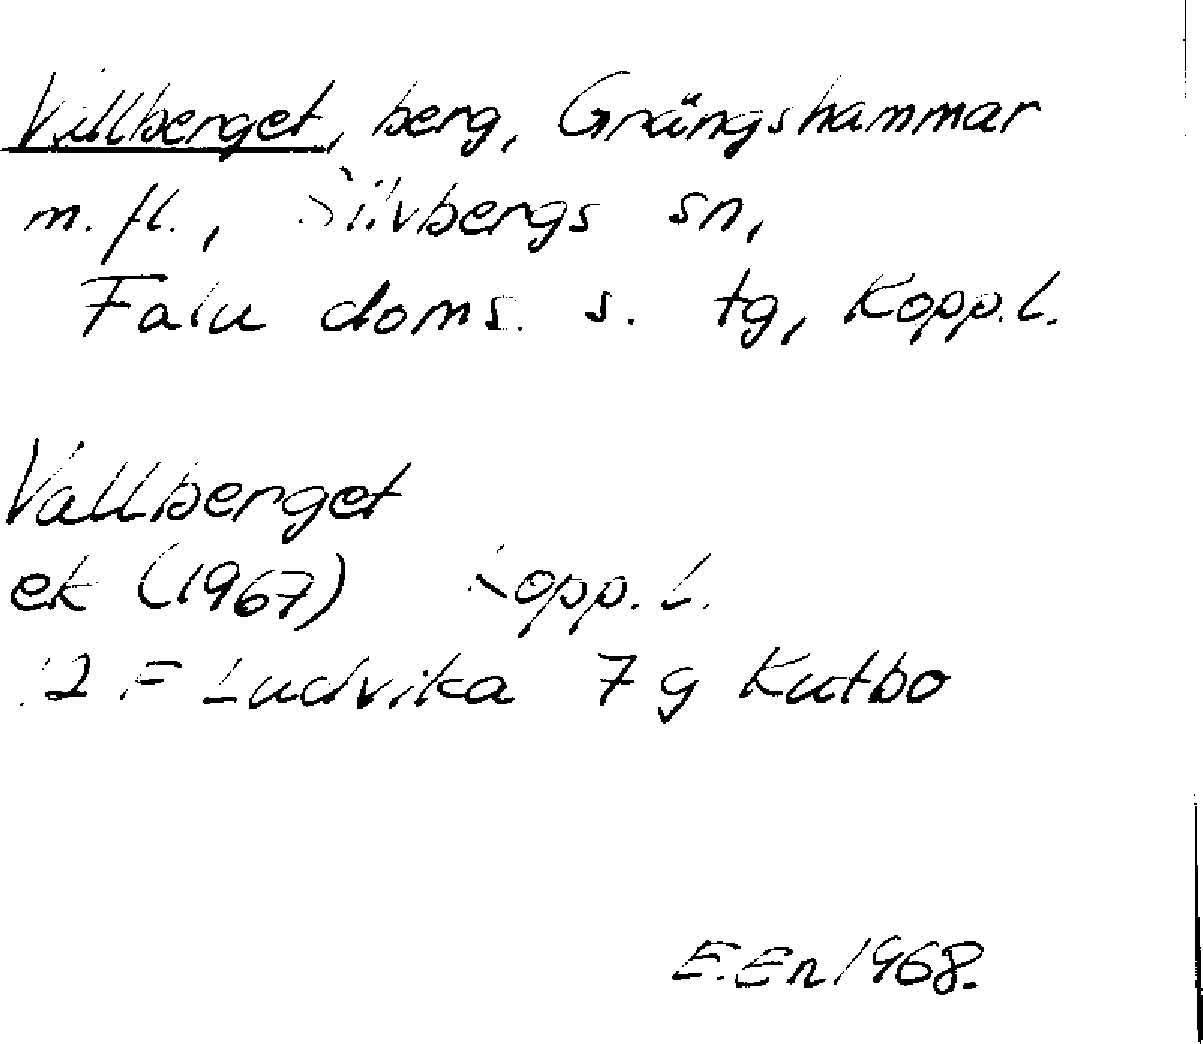 Vallberget, berg, Grängshammar
m. fl., Silvbergs sn,
Falu doms. s. tg, Kopp. l.
Vallberget
ek (1967) Kopp. L.
12 F Ludvika 7 g Kutbo
E. En 1968.